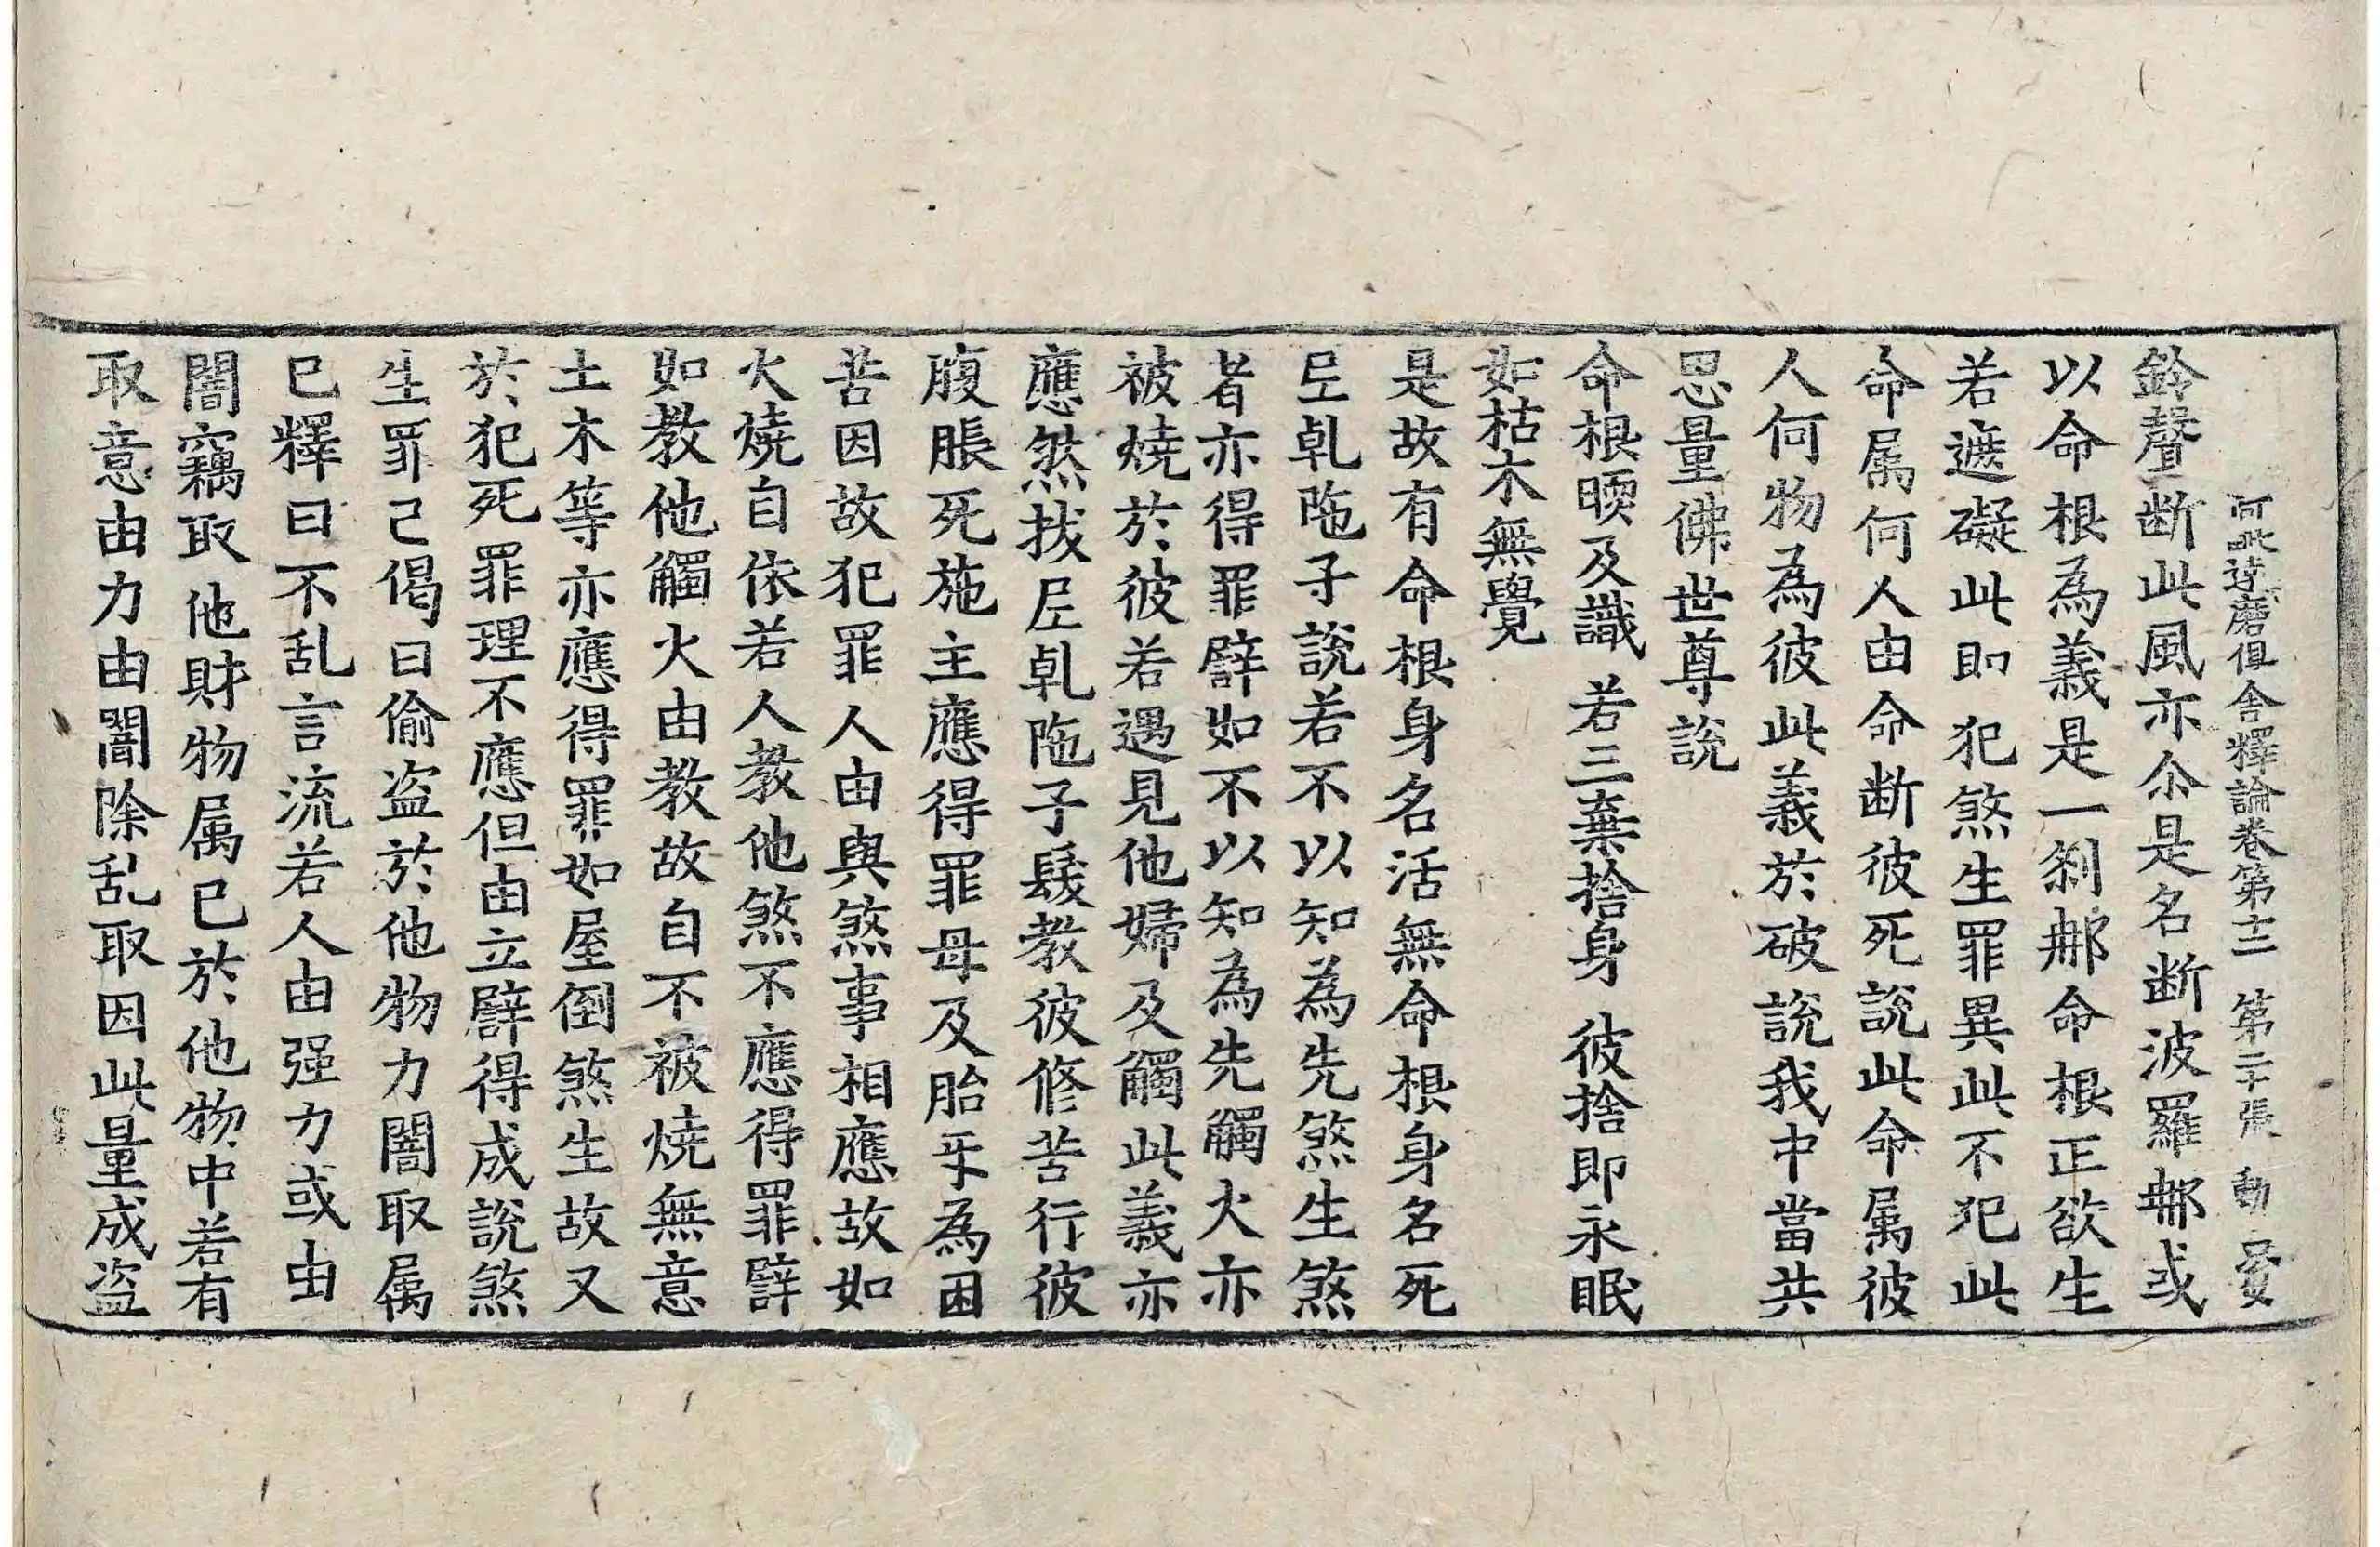 阿毗達磨俱舍釋論卷第十三 第二十張 動
鈴聲斷此風亦尒是名斷波羅𨚗或
以命根為義是一刹𨚗命根正欲生
若遮礙此即犯煞生罪異此不犯此
命属何人由命斷彼死說此命属彼
人何物為彼此義於破說我中當共
思量佛世尊說
命根暎及識 若三棄捨身 彼捨即永眠
如枯木無覺
是故有命根身名活無命根身名死
𡰱乹陁子說若不以知為先煞生煞
者亦得罪譬如不以知為先觸火亦
被燒於彼若遇見他婦及觸此義亦
應然拔𡰱乹陁子髮教彼修苦行彼
腹脹死施主應得罪母及胎㸦為困
苦因故犯罪人由與煞事相應故如
火燒自依若人教他煞不應得罪譬
如教他觸火由教故自不被燒無意
土木等亦應得罪如屋倒煞生故又
於犯死罪理不應但由立譬得成說煞
生罪已偈曰偷盗於他物力闇取属
已釋曰不乱言流若人由强力或由
闇竊取他財物属已於他物中若有
取意由力由闇除乱取因此量成盗